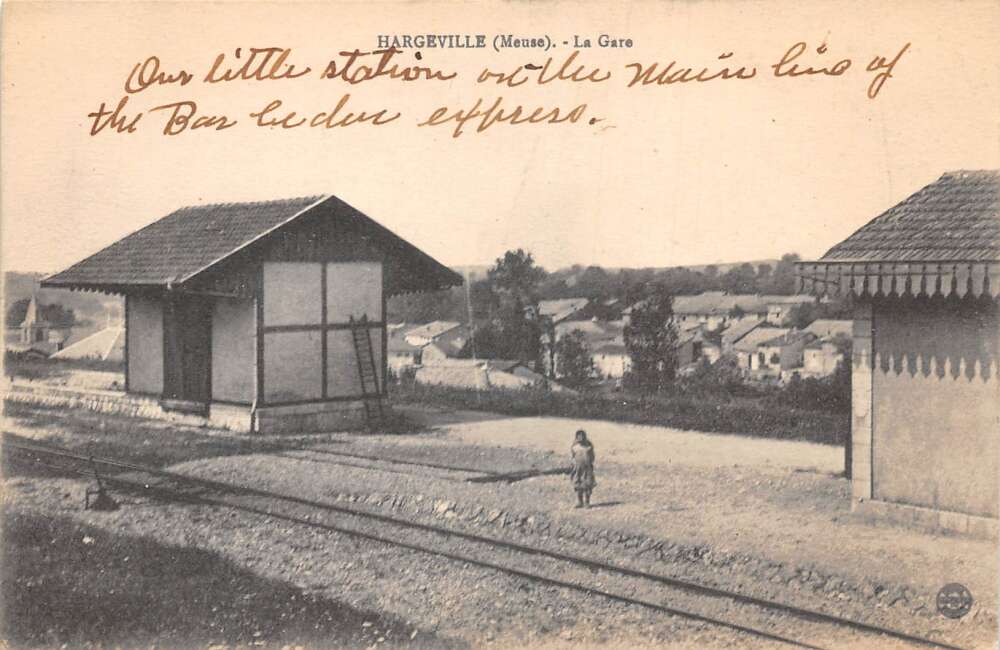 HARGEVILLE (Meuse). - La Gare
Our little station on the Main line of
the Bar le duc express.